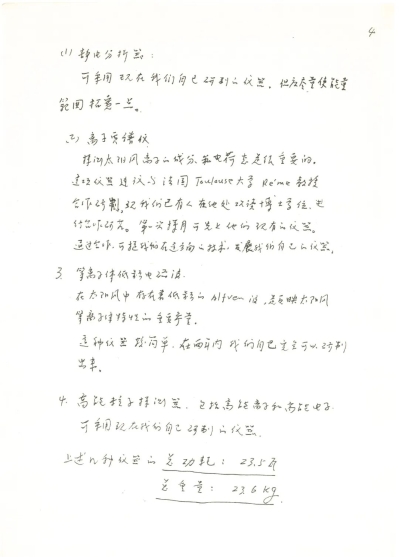 4
(1) 静电分析器:
可采用现在我们自己研制的仪器。但应尽量使能量
范围拓宽一点。
(2) 离子质谱仪
探测太阳风离子的成分和电荷态是很重要的。
这项仪器建议与法国 Toulouse 大学 Reme 教授
合作研制, 现我们已有人在他处攻读博士学位, 进
行合作研究。第一次探月可先上他们现有的仪器。
通过合作, 可提高我们在这方面的技术, 发展我们自己的仪器。
3. 等离子体低频电磁波
在太阳风中存在着低频的 Alfven 波, 是反映太阳风
等离子体特性的重要参量。
这种仪器较简单, 在两年内我们自己完全可以研制
出来。
4. 高能粒子探测器, 包括高能离子和高能电子
可采用现在我们自己研制的仪器
上述几种仪器的总功耗: 23.5瓦
总重量: 23.6 kg.